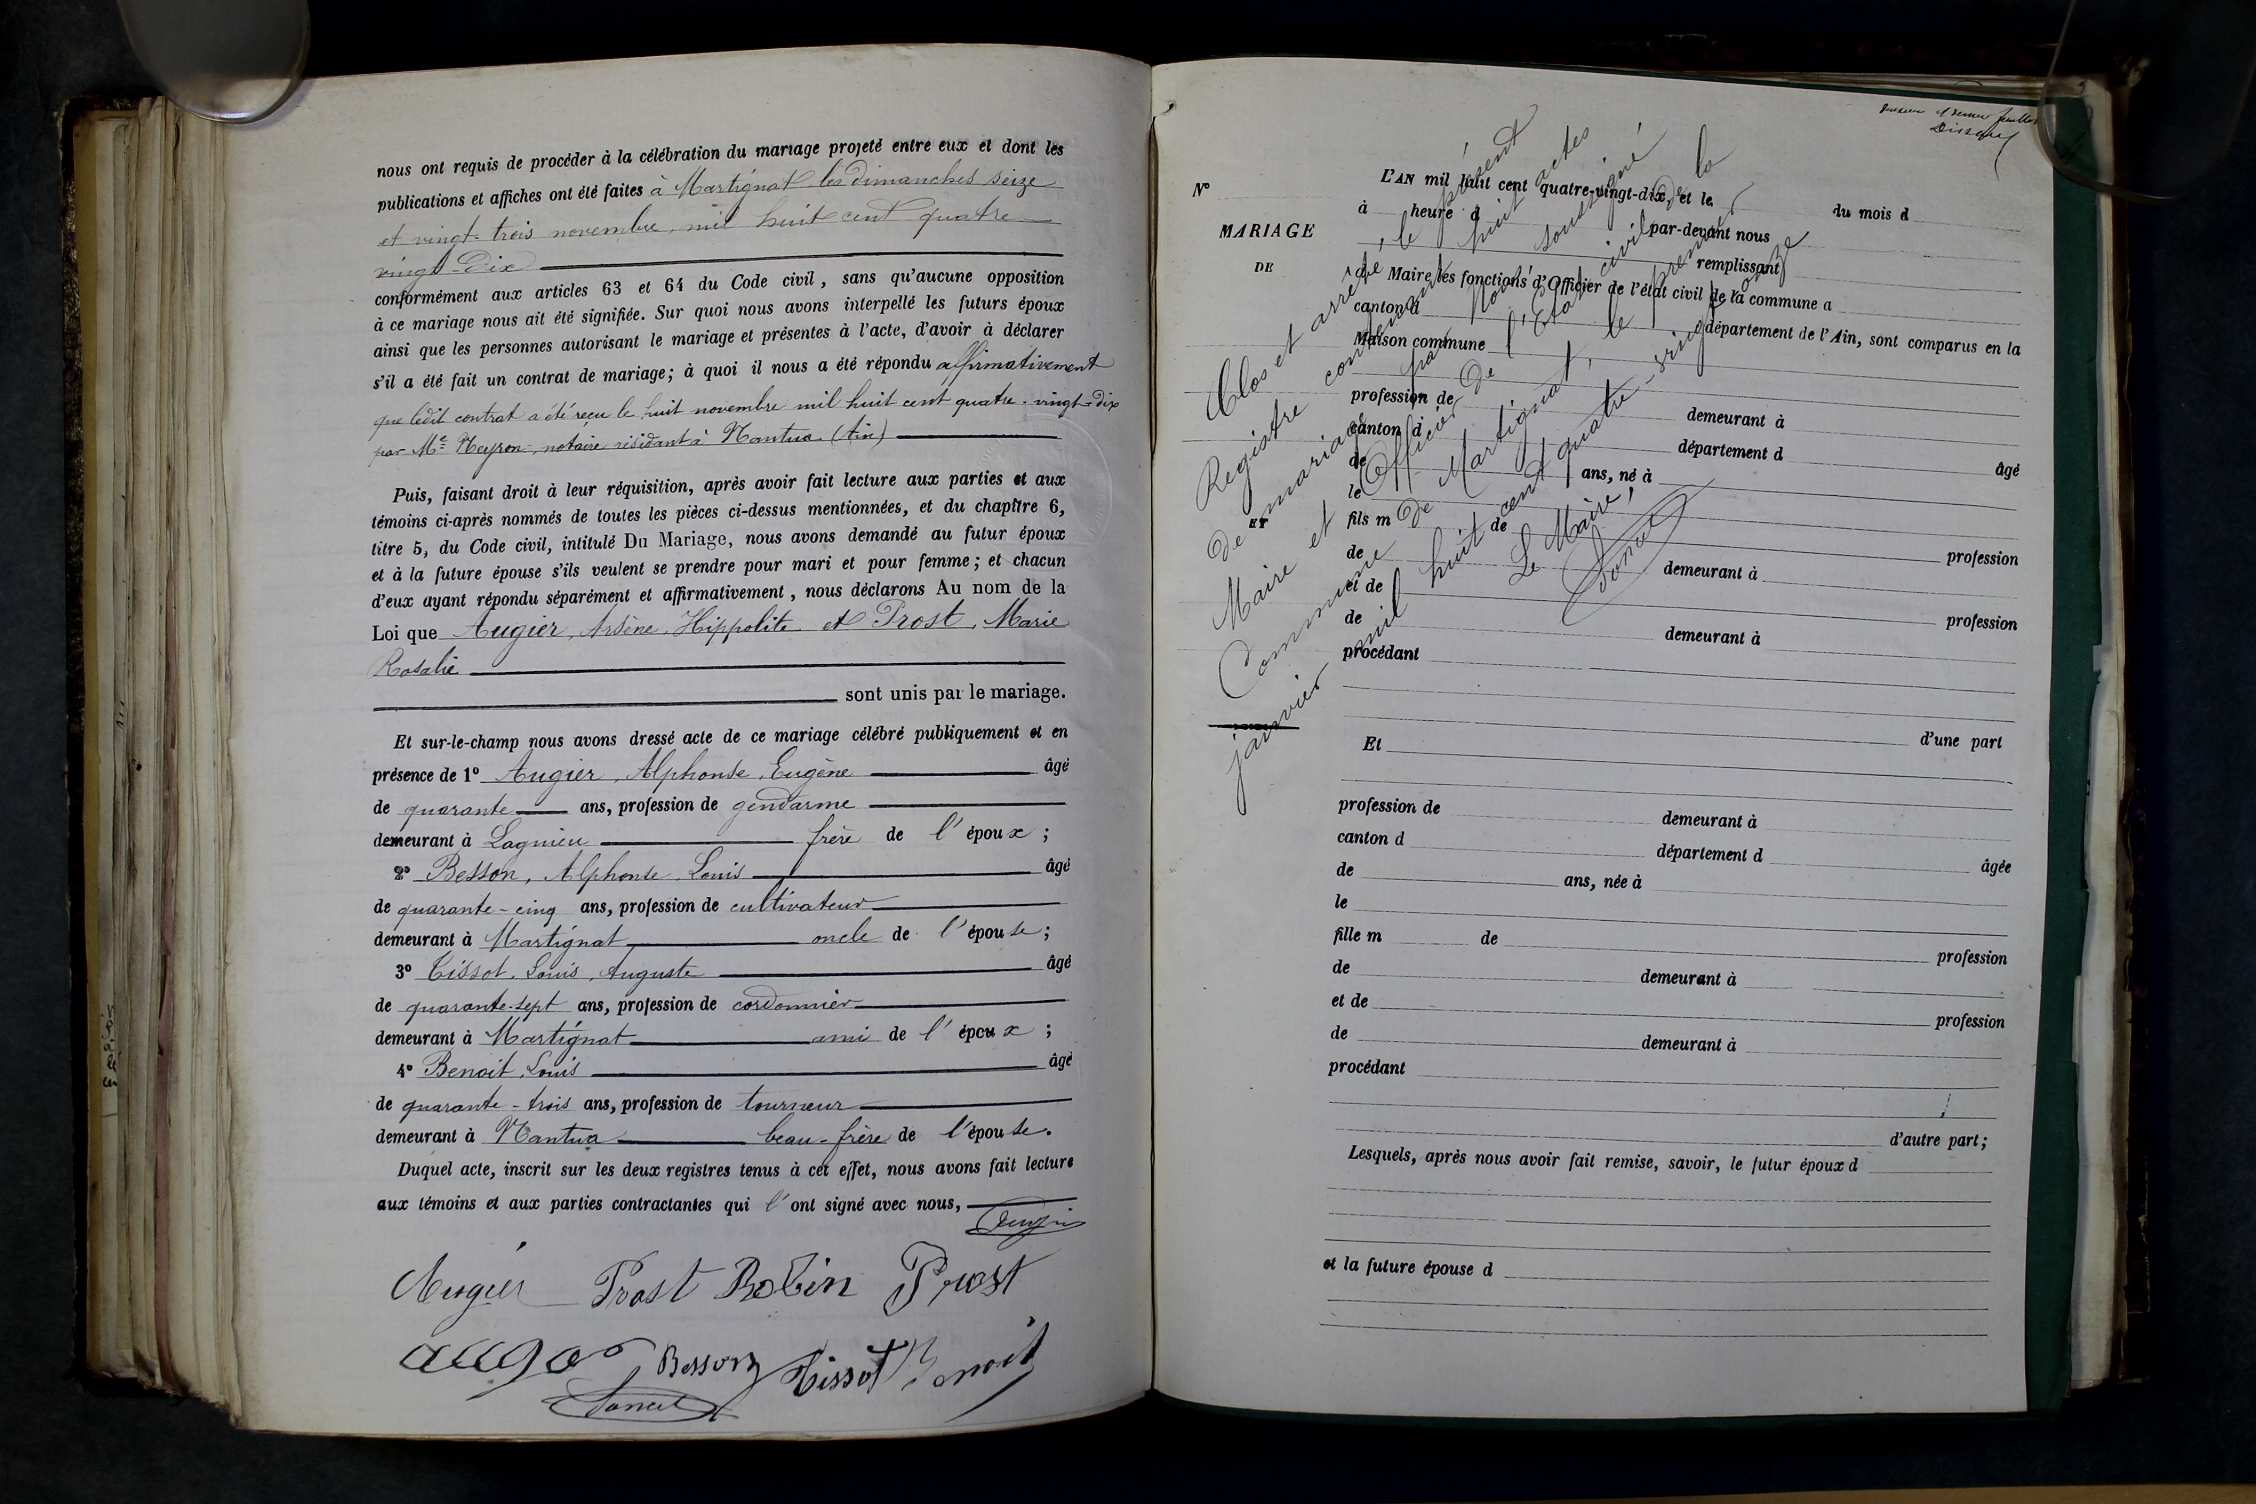 nous ont requis de procéder à la célébration du mariage projeté entre eux et dont les
publications et affiches ont été faites à Martignat les dimanches seize
et vingt-trois novembre, mil huit cent quatre
vingt-dix
conformément aux articles 63 et 64 du Code civil, sans qu'aucune opposition
à ce mariage nous ait été signifiée. Sur quoi nous avons interpellé les futurs époux
ainsi que les personnes autorisant le mariage et présentes à l'acte, d'avoir à déclarer
s'il a été fait un contrat de mariage; à quoi il nous a été répondu affirmativement
que ledit contrat a été reçu le huit novembre mil huit cent quatre-vingt-dix
par Me Neyron, notaire résidant à Nantua (Ain)
Puis, faisant droit à leur réquisition, après avoir fait lecture aux parties et aux
témoins ci-après nommés de toutes les pièces ci-dessus mentionnées, et du chapître 6,
titre 5, du Code civil, intitulé Du Mariage, nous avons demandé au futur époux
et à la future épouse s'ils veulent se prendre pour mari et pour femme; et chacun
d'eux ayant répondu séparément et affirmativement, nous déclarons Au nom de la
Loi que Augier, Arsène, Hippolite et Prost, Marie
Rosalie
sont unis par le mariage.
Et sur-le-champ nous avons dressé acte de ce mariage célébré publiquement et en
présence de 1° Augier, Alphonse, Eugène âgé
de quarante ans, profession de gendarme
demeurant à Lagnieu frère de l'époux;
2° Besson, Alphonse, Louis âgé
de quarante-cinq ans, profession de cultivateur
demeurant à Martignat oncle de l'épouse;
3° Tissot, Louis, Auguste âgé
de quarante-sept ans, profession de cordonnier
demeurant à Martignat ami de l'époux;
4° Benoit, Louis âgé
de quarante-trois ans, profession de tourneur
demeurant à Nantua beau-frère de l'épouse.
Duquel acte, inscrit sur les deux registres tenus à cet effet, nous avons fait lecture
aux témoins et aux parties contractantes qui l'ont signé avec nous,
Augier Prost Robin Prost
Besson Tissot Benoit
N°
MARIAGE
DE
ET
L'AN mil huit cent quatre-vingt-dix, et le du mois d
à heure d par-devant nous
remplissant
Maire les fonctions d'Officier de l'état civil de la commune d
canton d département de l'Ain, sont comparus en la
Maison commune
profession de demeurant à
canton d département d âgé
de ans, né à
le
fils m de profession
de demeurant à
et de profession
de demeurant à
procédant
d'une part
Et
profession de demeurant à
canton d département d âgée
de ans, née à
le
fille m de profession
de demeurant à
et de profession
de demeurant à
procédant
d'autre part;
Lesquels, après nous avoir fait remise, savoir, le futur époux d
et la future épouse d
Clos et arrêté, le présent
Registre contenant huit actes
de mariage par Nous soussigné
Maire et Officier de l'Etat civil de la
Commune de Martignat, le premier
janvier mil huit cent quatre-vingt-onze
Le Maire,